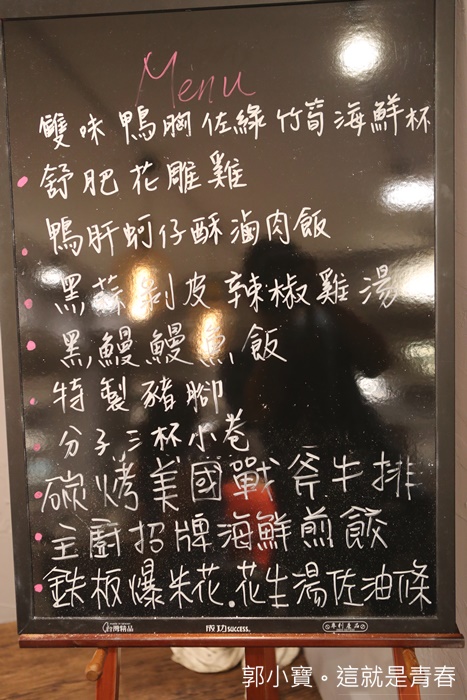 Menu
雙味鴨胸佐綠竹筍海鮮杯
舒肥花雕雞
鴨肝蚵仔酥滷肉飯
黑蒜剝皮辣椒雞湯
黑鰻鰻魚飯
特製豬腳
分子三杯小卷
碳烤美國戰斧牛排
主廚招牌海鮮煎餃
鉄板爆米花.花生湯佐油條
台灣精品
成功 SUCCESS.
專利產品
郭小寶。這就是青春